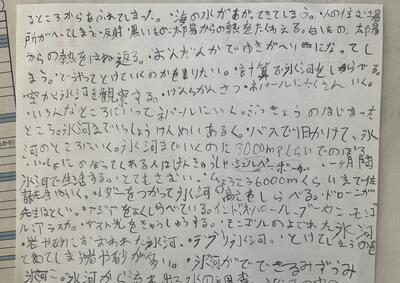 るところからあふれてしまった。・海の水があがってきてしまう。・人の住む場
所がへってしまう・反射・黒いもの太陽からの熱をたくわえる。白いもの、太陽
からの熱をはね返る。・だんだんかでゆきがへり 一面になってし
まう。・どうやってとけていくのかを知りたい。・計算で氷河をしらべる。
・空から氷河を観察する。・けんちがんさつ・ネパールにたくさんいく。
・いろんなところに行って ネパールにいく。ぶっきょうのはじまった
ところ。氷河までいっしょうけんめいあるく。・バスで1日かけて、氷
河のところにいく。氷河までいくのに3000mくらいでのぼる。
・いっしょにのぼってくれる人はげんきな人 シェルパ ポーター 一ヶ月間
氷河で生活する。・とてもさむい。・ひょうこう6000mくらいまで 佐
藤先生はいく。・レーダーをつかって氷河の高さをしらべる。ドローンが
先生はとくい。・アジアをよくしらべている。インド、ネパール、ブータン、モンゴ
ル、アラスカ。・ダスト光をきゅうしゅうする。・モンゴルのよごれた氷河
・岩や砂におおわれた氷河、・デブリ氷河。・とけてしまうのを
とめてしまう岩や砂が多い。・氷河がとけてできるみずうみ
氷河こ。氷河から流れ出る水の調査